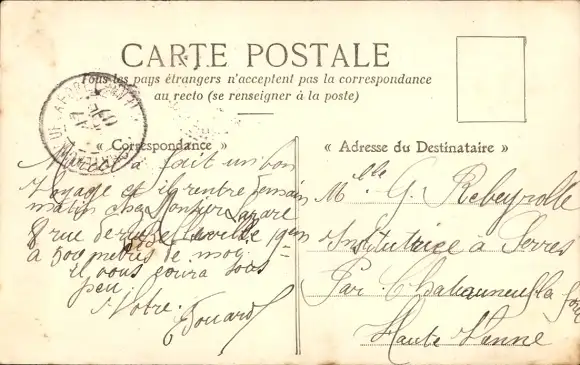 CARTE POSTALE
Tous les pays étrangers n'acceptent pas la correspondance
au recto (se renseigner à la poste)
« Correspondance »
Marcel a fait un bon
voyage et il rentre demain
matin chez Monsieur Lazare
8 rue de
à 500 metres de moi
il vous
peu
Votre
Edouard
« Adresse du Destinataire »
Mlle G. Rebeyrolle
Institutrice à Serres
Par Chateauneuf la forêt
Haute Vienne